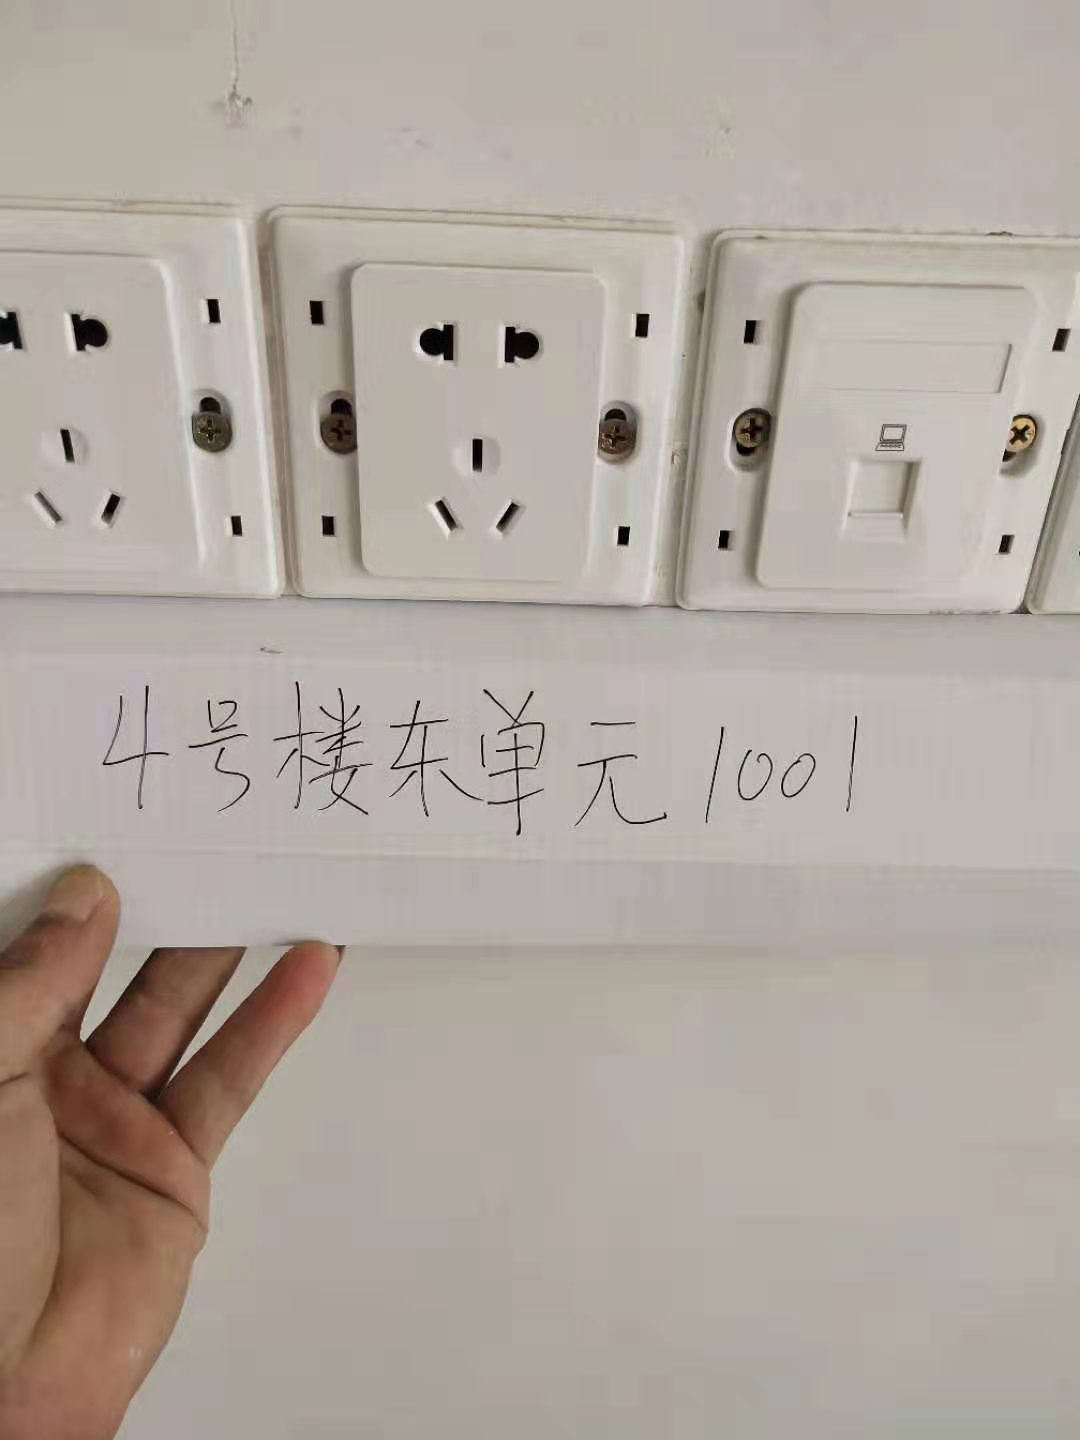 4号楼东单元1001